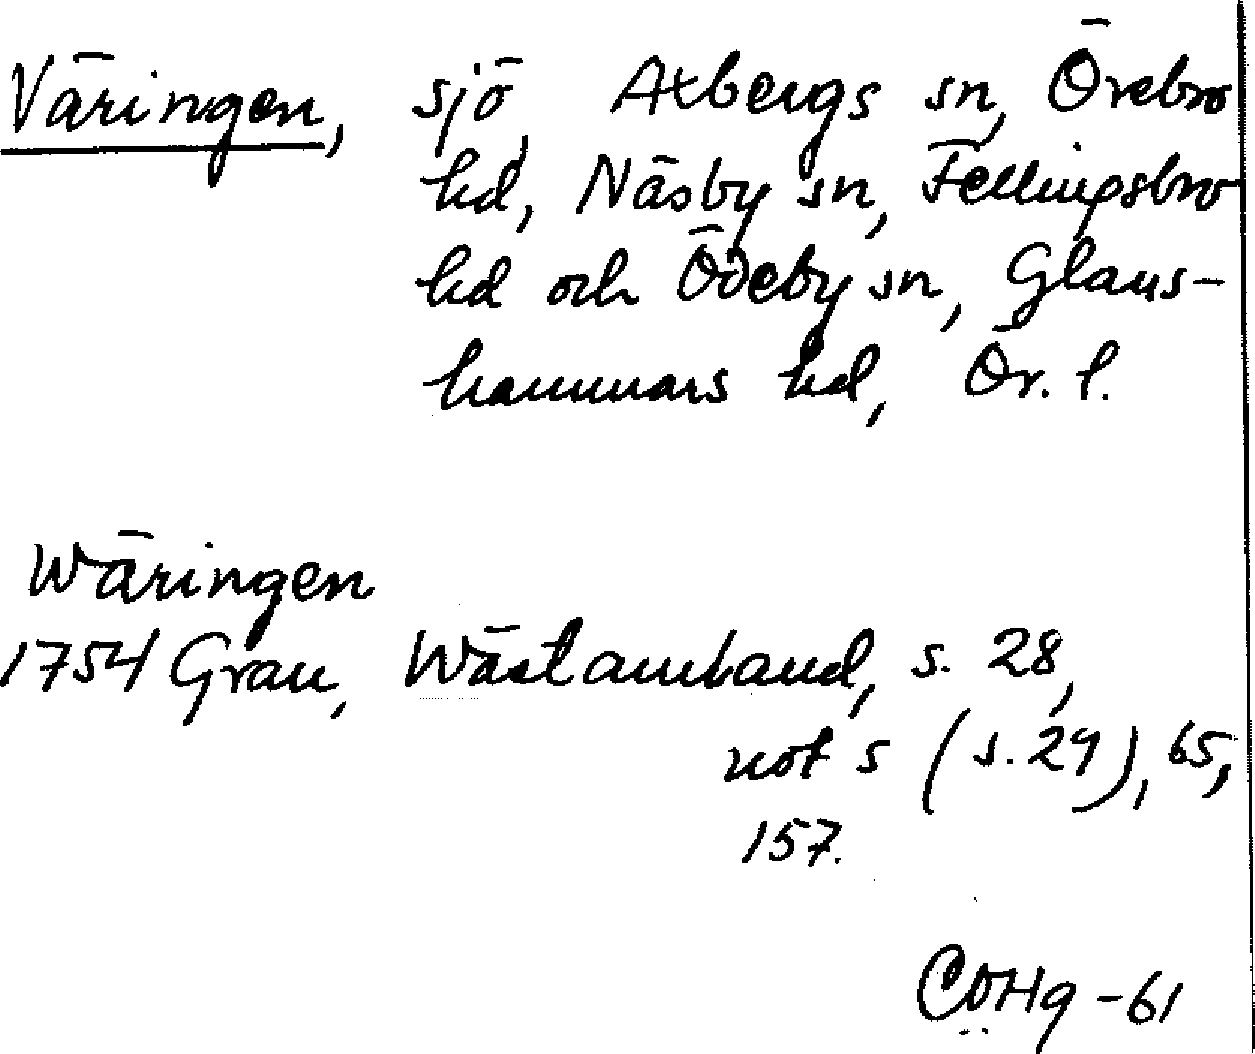 Väringen, sjö, Axbergs sn, Örebro
hd, Näsby sn, Fellingsbro
hd och Ödeby sn, Glans-
hammars hd, Ör. l.
Wäringen
1754 Grau, Wästamland, s. 28,
not s (s. 29), 65,
157.
CÖHg -61